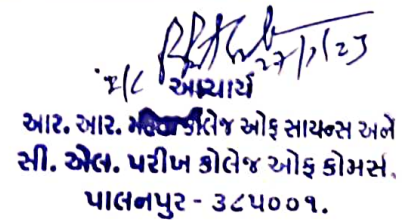 27/7/23
I/C આચાર્ય
આર. આર. મહેતા કોલેજ ઓફ સાયન્સ અને
સી. એલ. પરીખ કોલેજ ઓફ કોમર્સ,
પાલનપુર - ૩૮૫૦૦૧.